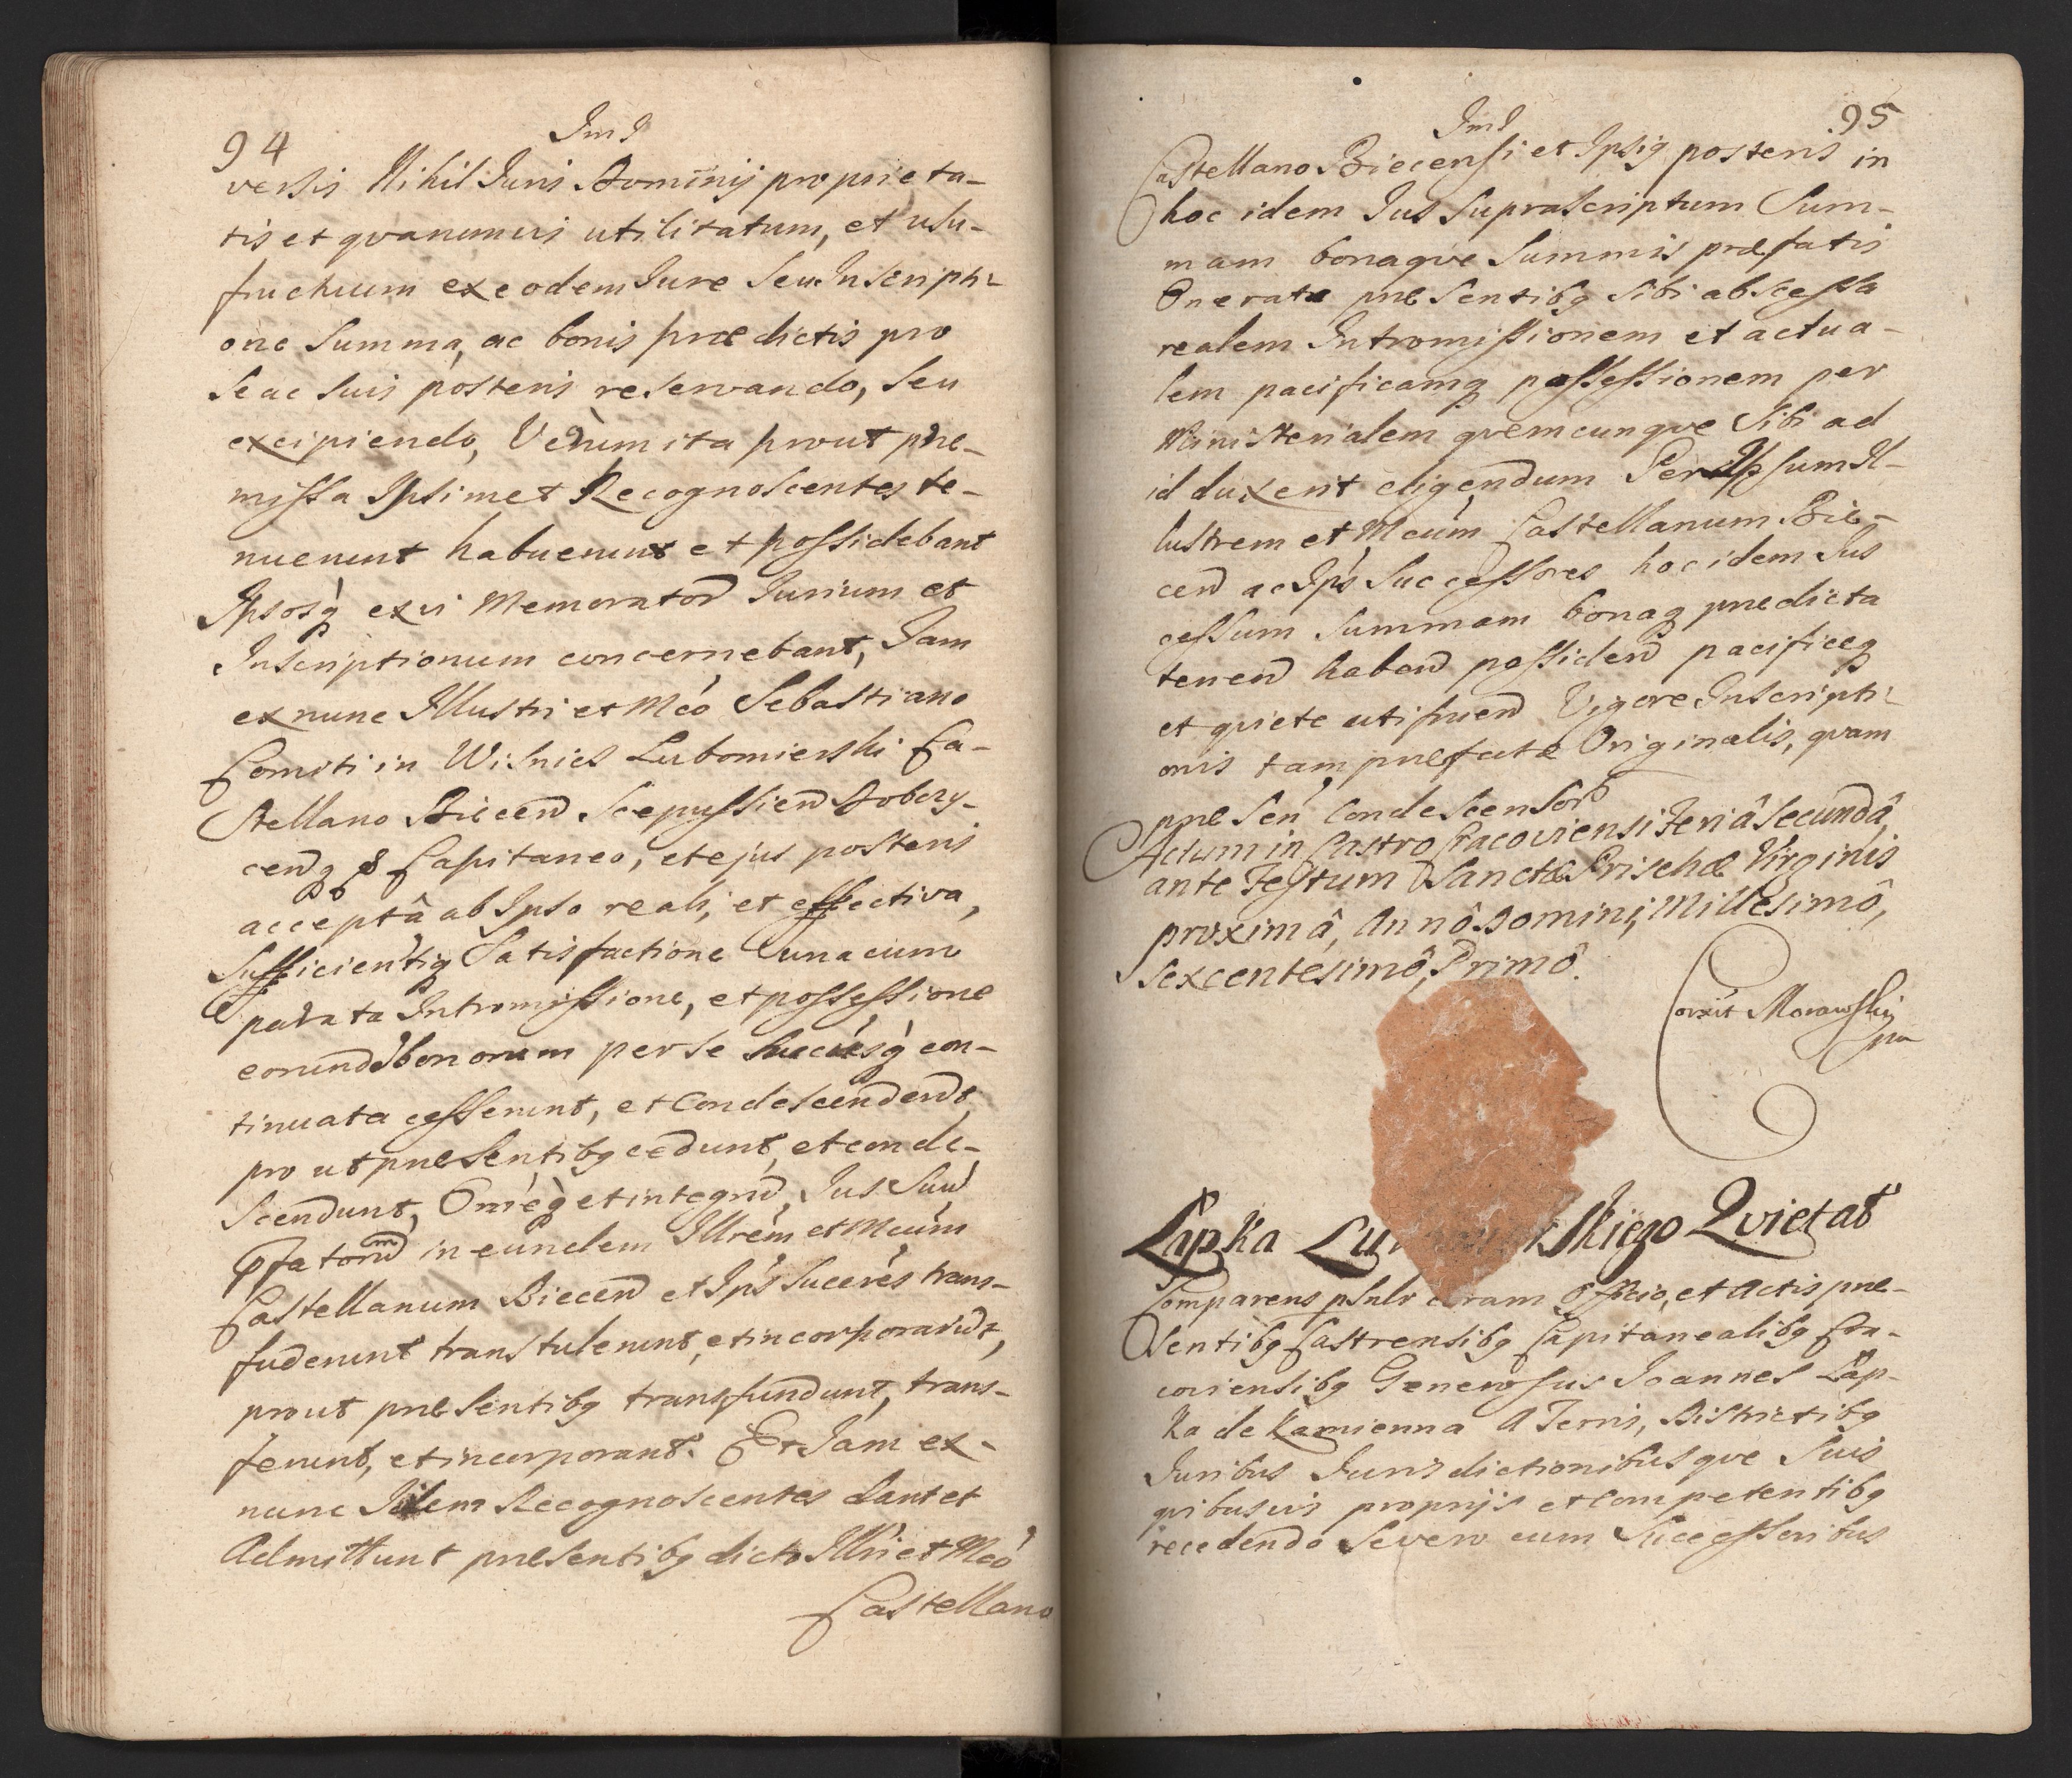 94
Jml
versis Nihil Juris Dominij proprieta-
tis et qvarumvis utilitatum, et usu-
fructuum ex eodem Jure Seu Inscripti-
one Summa, ac bonis prædictis pro
Se ac Suis posteris reservando, Seu
excipiendo, Verùm ita prout præ-
missa Ipsimet Recognoscentes te-
nuerunt habuerunt et possidebant
Ipsosq ex vi Memorator Jurium et
Inscriptionum concernebant, Jam
ex nunc Illustri et Mco Sebastiano
Comiti in Wisnicz Lubomierski Ca-
Stellano Biecen Scepussien Dobczy-
cenq & Capitaneo, et ejus posteris
acceptâ ab Ipso reali, et effectiva,
Sufficientiq Satisfactione una cum
parata Intromissione, et possessione
eorund bonorum per se Succúsq con-
tinuata cesserunt, et Condescenderût,
pro ut præsentibq cedunt, et conde-
Scendunt, Omeq et integrû, Jus Suû
Pfatorum in eundem Illrem et Mcum
Castellanum Biecen et Ips Succres trans-
fuderunt transtulerunt, et incorporarût,
prout præsentibq transfundunt, trans-
ferunt, et incorporant. Et Jam ex-
nunc Idem Recognoscentes dant et
Admittunt præsentibq dicto Illri et Mco
Castellano
95
Jml
Castellano Biecensi et Ipsiq posteris in
hoc idem Jus Suprascriptum Sum-
mam bonaqve Summis præfatis
Onerata præsentibq Sibi abscessa
realem Intromissionem et actua-
lem pacificamq possessionem per
Ministerialem qvemcunqve Sibi ad
id duxerit eligendum Per Ipsum Il-
lustrem et Mcum Castellanum Bie-
cen ac Ips Successores hoc idem Jus
cessum Summam bonaq prædicta
tenen haben possiden pacificeq
et qviete utifruen Vigore Inscripti-
onis tam præfatæ Originalis, qvam
præsen Condescensor
Actum in Castro Cracoviensi Feriâ Secundâ,
ante Festum Sanctæ Prischæ Virginis
proximâ, Annô Domini, Millesimô,
Sexcentesimô, Primô.
Corexit Morawski
mp
Łapka Lu skiego Qvietat
Comparens pSnlr coram Officio, et Actis præ-
Sentibq Castrensibq Capitanealibq Cra-
coviensibq Generosus Joannes Łap-
ka de Kamienna A Terris, Districtibq
Juribus Jurisdictionibusqve Suis
qvibusvis proprijs et competentibq
recedendo Se vero cum Successoribus